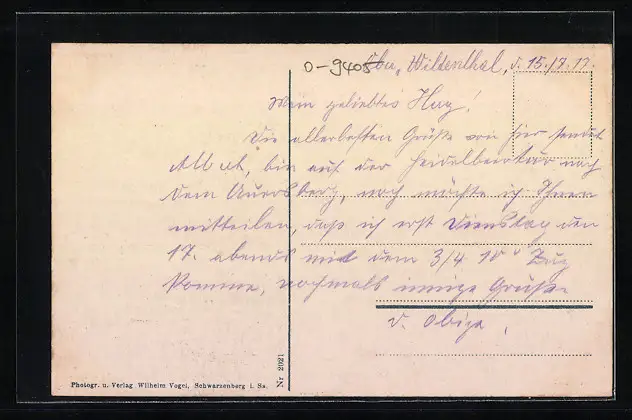 O-9405
Wildenthal, d. 15./7. 17.
Mein geliebtes Herz!
Die allerbesten Grüße von hier sendet
bin auf der nach
dem Auersberg, noch möchte ich Ihnen
mitteilen, daß ich erst Dienstag den
17. abends mit dem 3/4 10 Zug
komme, nochmals innige Grüße
v. Obige.
Photogr. u. Verlag Wilhelm Vogel, Schwarzenberg i. Sa.
Nr 2021